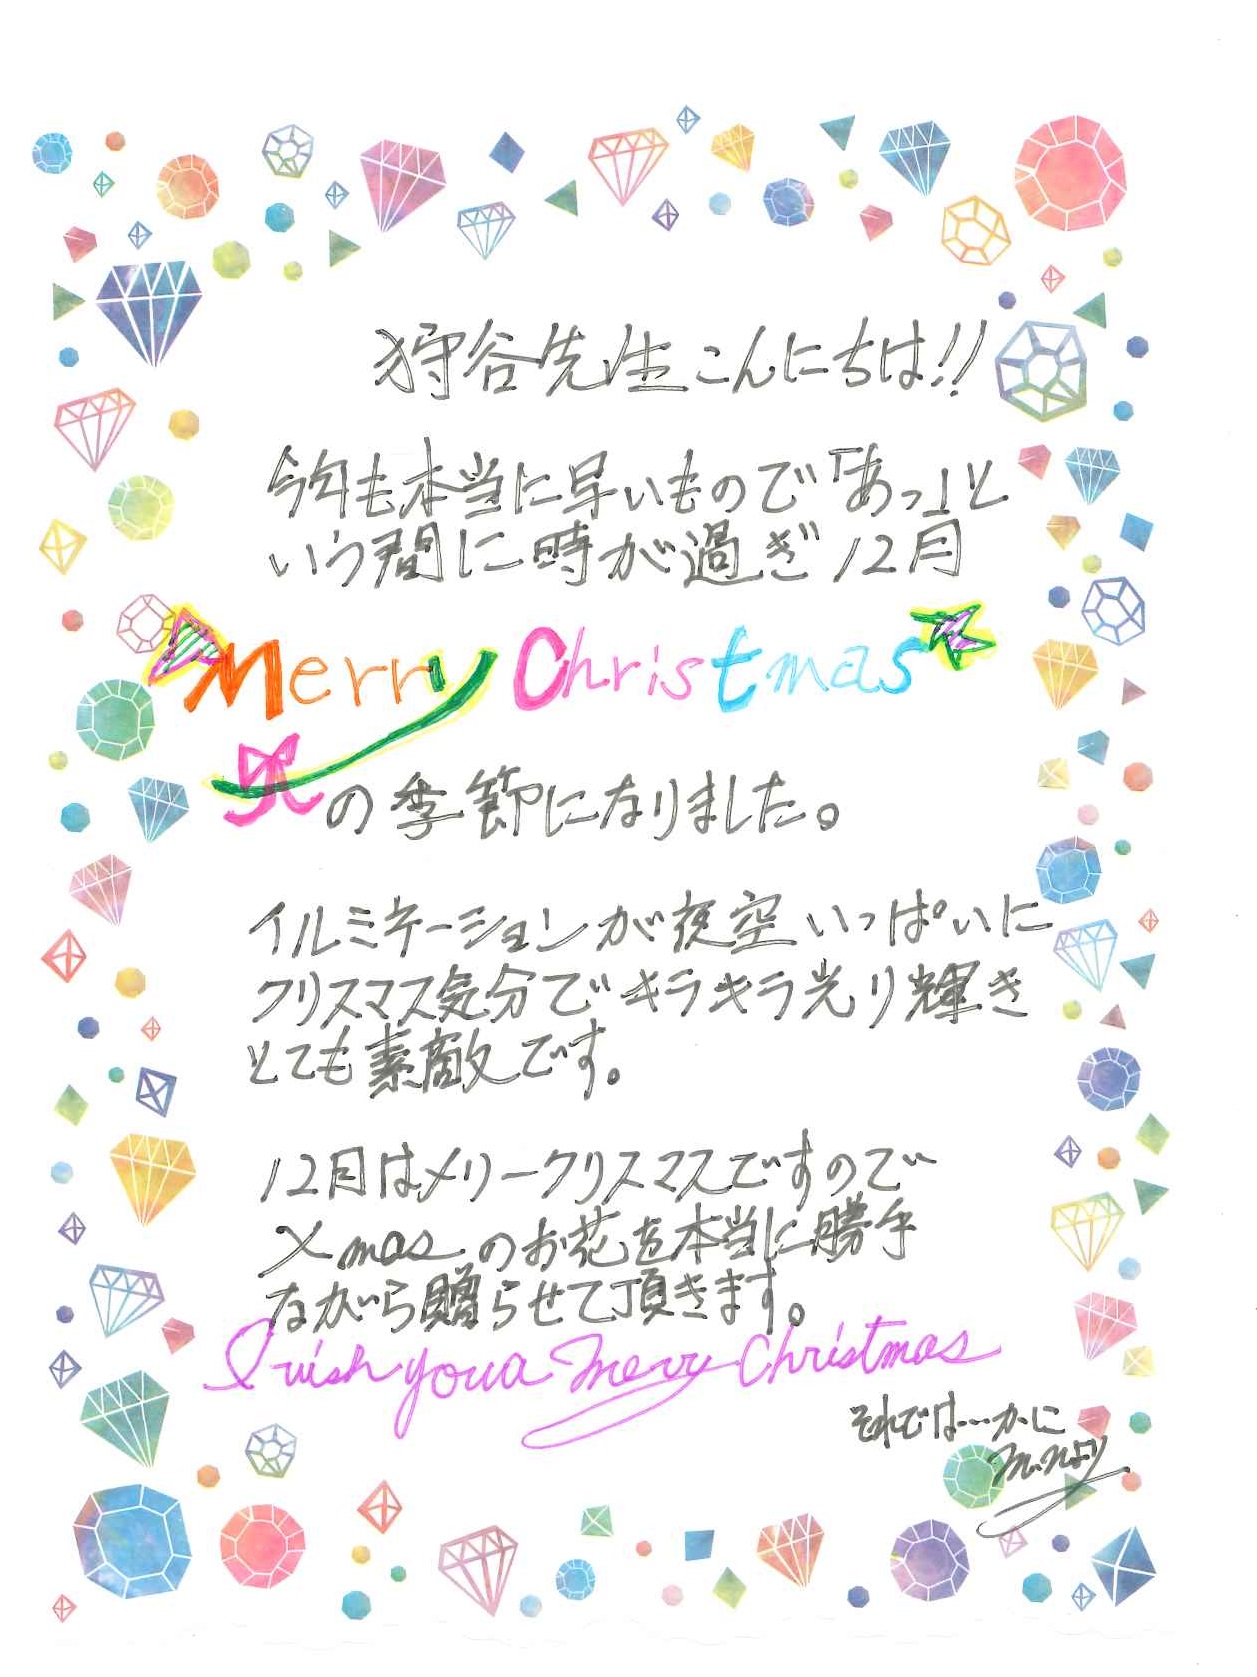 狩谷先生こんにちは!!
今年も本当に早いもので「あっ」と
いう間に時が過ぎ12月
Merry Christmas
の季節になりました。
イルミネーションが夜空いっぱいに
クリスマス気分でキラキラ光り輝き
とても素敵です。
12月はメリークリスマスですので
Xmasのお花を本当に勝手
ながら贈らせて頂きます。
I wish you a Merry Christmas
それでは…かに
M.Nより